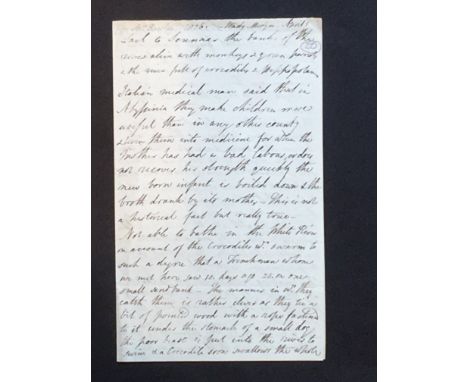 1856. Wady Medina
Sail to Sennaar the banks of the
river alive with monkeys & green parrots
& the river full of crocodiles & Hippopotami
Italian medical man said that in
Abyssinia they make children more
useful than in any other country
them into medicine for when the
Mother has had a bad labour & does
not recover his strength quickly the
new born infant is boiled down & the
broth drank by its mother - This is not
a historical fact but really true -
Not able to bathe in the White River
on account of the Crocodiles wh. swarm to
such a degree that a Frenchman whom
we met here saw 12 days ago 22 on one
small sand bank - The manner in wh. they
catch them is rather clever as they tie a
bit of pointed wood with a rope fastened
to it under the stomach of a small dog
the poor beast is put into the river to
swim & a Crocodile soon swallows the whole